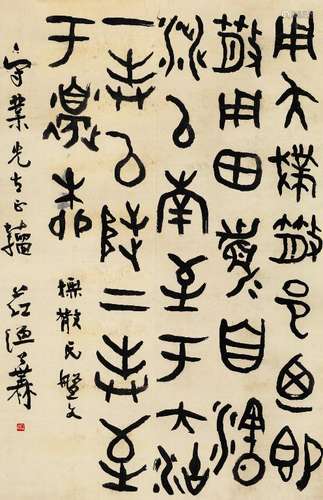 用夨撲散邑迺即
散用田眉自瀗
涉以南至于大沽
一封以陟二封至
于邊柳
橅散氏盤文
業先生正